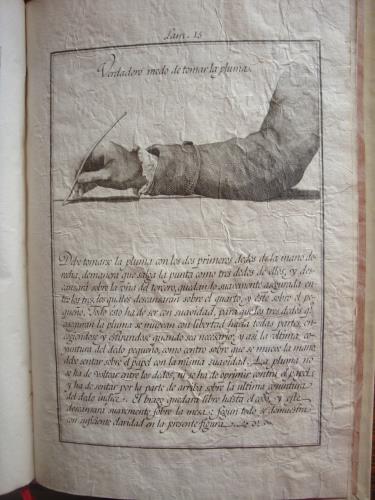 Lam. 15
Verdadero modo de tomar la pluma.
Debe tomarse la pluma con los dos primeros dedos de la mano de-
recha, de manera que salga la punta como tres dedos de ellos, y des-
cansará sobre la uña del tercero, quedando suavemente asegurada en-
tre los tres, los quales descansarán sobre el quarto, y éste sobre el pe-
queño. Todo esto ha de ser con suavidad, para que los tres dedos q.
aseguran la pluma se muevan con libertad hasta todas partes, en-
cogiendose y estirandose quando sea necesario; y asi la ultima co-
yuntura del dedo pequeño, como centro sobre que se mueve la mano
ha de sentar sobre el papel con la misma suavidad. La pluma no
se ha de voltear entre los dedos, ni se ha de oprimir contra el papel
y ha de sentar por la parte de arriba sobre la ultima coiuntura
del dedo índice. El brazo quedará libre hasta el codo, y este
descansará suavemente sobre la mesa. Segun todo se demuestra
con suficiente claridad en la presente figura.